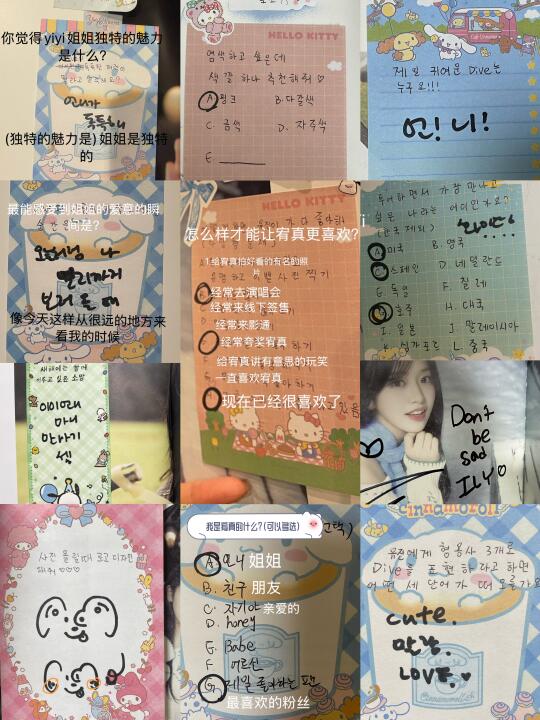 你觉得yiyi姐姐独特的魅力
是什么?
언니가
독특해
(独特的魅力是)姐姐是独特
的
HELLO KITTY
염색하고 싶은데
색깔 하나 추천해줘♡
A 핑크
B. 다갈색
C. 금색
D. 자주색
E.
제일 귀여운 Dive는
누구요!!!
언!니!
最能感受到姐姐的爱意的瞬
间是?
오늘처럼 나
멀리까지
보러 올 때
像今天这样从很远的地方来
看我的时候
HELLO KITTY
怎么样才能让宥真更喜欢?
1.给宥真拍好看的有名的照
片
经常去演唱会
经常来线下签售
经常来影通
经常夸奖宥真
给宥真讲有意思的玩笑
一直喜欢宥真
现在已经很喜欢了
투어하면서 가장 만나고
싶은 나라는 어디인가요?
(한국 제외)
A 미국
B. 영국
C 스페인
D. 네덜란드
E. 독일
F. 칠레
G 호주
H. 태국
I. 일본
J. 말레이시아
K. 싱가포르
L. 중국
새해에는 함께
이루고 싶은 소망
이이오래
마니
만나기
셈
Don't
be
sad
ILY♡
사진 올릴때 로고 디자인
해줘 ♡♡♡
我是宥真的什么?(可以多选)
A 언니 姐姐
B. 친구 朋友
C. 자기야 亲爱的
D. honey
E. Babe
F. 어르신
G 제일 좋아하는 팬
最喜欢的粉丝
Cinnamoroll
유진에게 형용사 3개로
Dive를 표현하라고 하면
어떤 세 단어가 떠오를가요
cute.
만냥.
LOVE.♥
Cinnamoroll